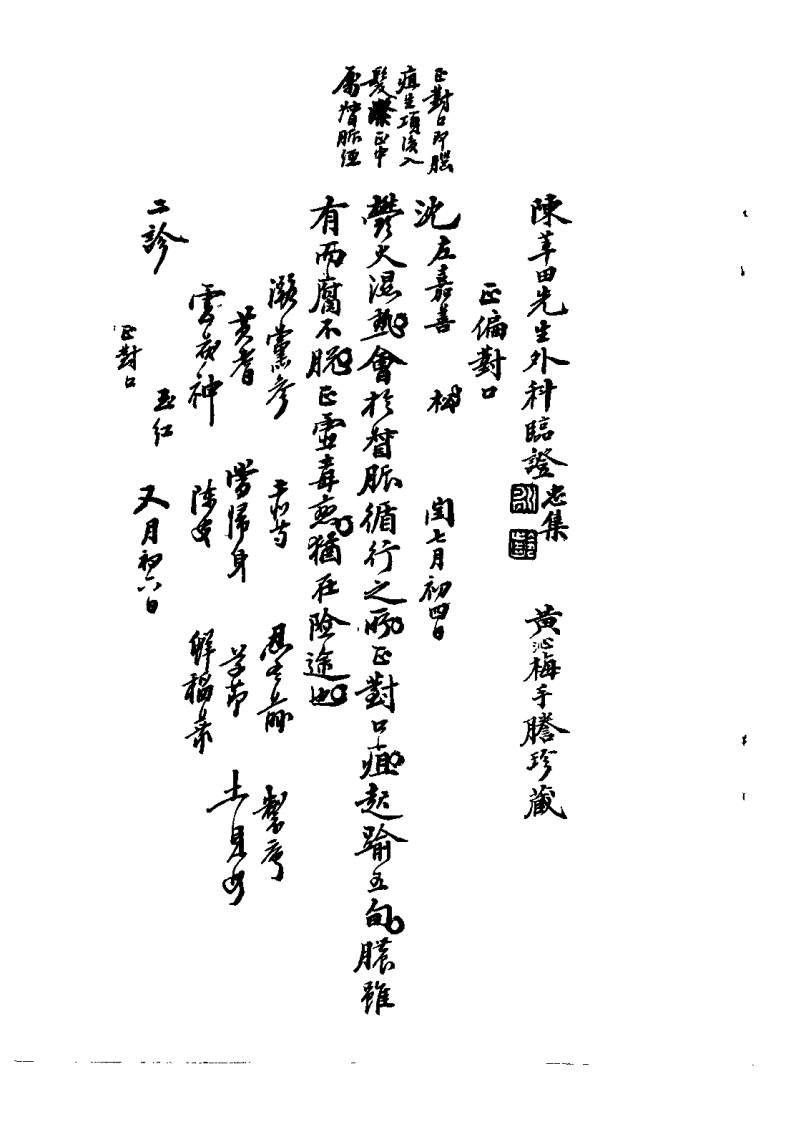 陳莘田先生外科臨證 忠集 黃沁梅手謄珍藏
正偏對口
正對口即腦
疽生項後入
髮際正中
屬督脈經
沈左嘉善 閏七月初四日
鬱火濕熱會於督脈循行之所正對口疽起踰五旬膿雖
有而腐不脫正虛毒熾猶在險途也
潞黨參 製冬朮
黃耆 當歸身 土貝母
雲茯神 陳皮 鮮稻葉
玉紅
二診 又月初六日
正對口